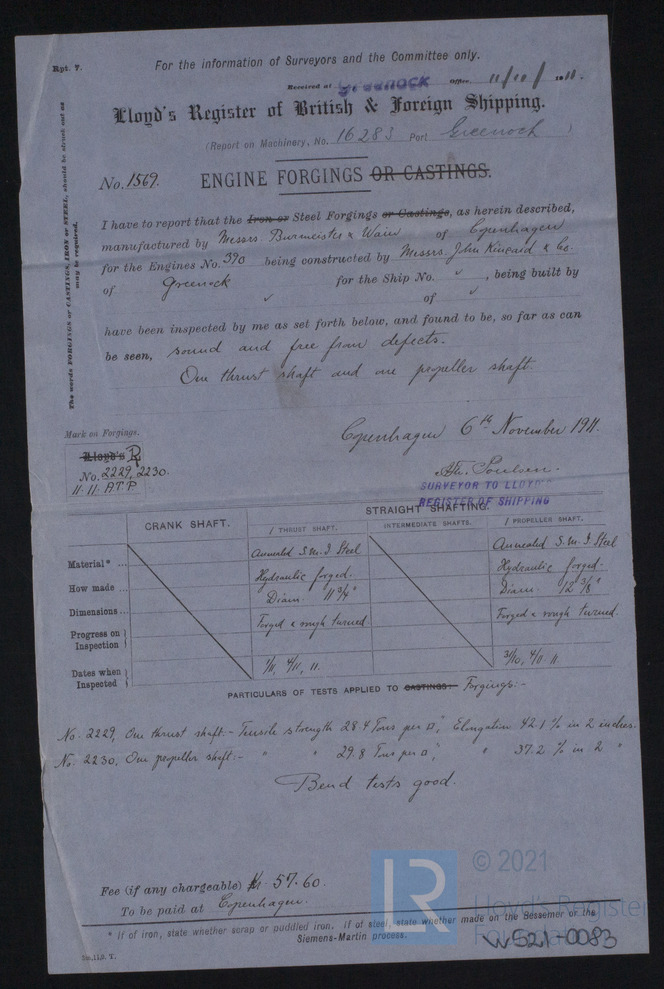 Rpt. 7.
For the information of Surveyors and the Committee only.
Received at Greenock Office, 11/10/1911.
Lloyd's Register of British & Foreign Shipping.
(Report on Machinery, No. 16283 Port Greenock )
No. 1569. ENGINE FORGINGS OR CASTINGS.
The words FORGINGS or CASTINGS, IRON or STEEL, should be struck out as may be required.
I have to report that the Iron or Steel Forgings or Castings, as herein described,
manufactured by Messrs. Burmeister & Wain of Copenhagen
for the Engines No. 390 being constructed by Messrs. John Kincaid & Co.
of Greenock for the Ship No. " , being built by
of
have been inspected by me as set forth below, and found to be, so far as can
be seen, sound and free from defects.
One thrust shaft and one propeller shaft.
Copenhagen 6th November 1911.
Mark on Forgings.
Lloyd's LR
No. 2229, 2230.
11.11. A.T.P.
Poulsen.
SURVEYOR TO LLOYD'S
REGISTER OF SHIPPING
STRAIGHT SHAFTING.
CRANK SHAFT. 1 THRUST SHAFT. INTERMEDIATE SHAFTS. 1 PROPELLER SHAFT.
Material* ... Annealed S.M.I Steel Annealed S.M.I Steel
How made ... Hydraulic forged. Hydraulic forged.
Dimensions ... Diam. 11 3/4" Diam. 12 3/8"
Progress on Inspection Forged & rough turned. Forged & rough turned.
Dates when Inspected 1/11, 4/11, 11. 31/10, 4/11 11.
PARTICULARS OF TESTS APPLIED TO CASTINGS:— Forgings:-
No. 2229, One thrust shaft:- Tensile strength 28.4 Tons per □", Elongation 42.1 % in 2 inches.
No. 2230, One propeller shaft:- " " 29.8 Tons per □", " 37.2 % in 2 "
Bend tests good.
Fee (if any chargeable) Kr. 57.60.
To be paid at Copenhagen.
* If of iron, state whether scrap or puddled iron. If of steel, state whether made on the Bessemer or the
Siemens-Martin process.
LR © 2021
Lloyd's Register
Foundation
W521-0083